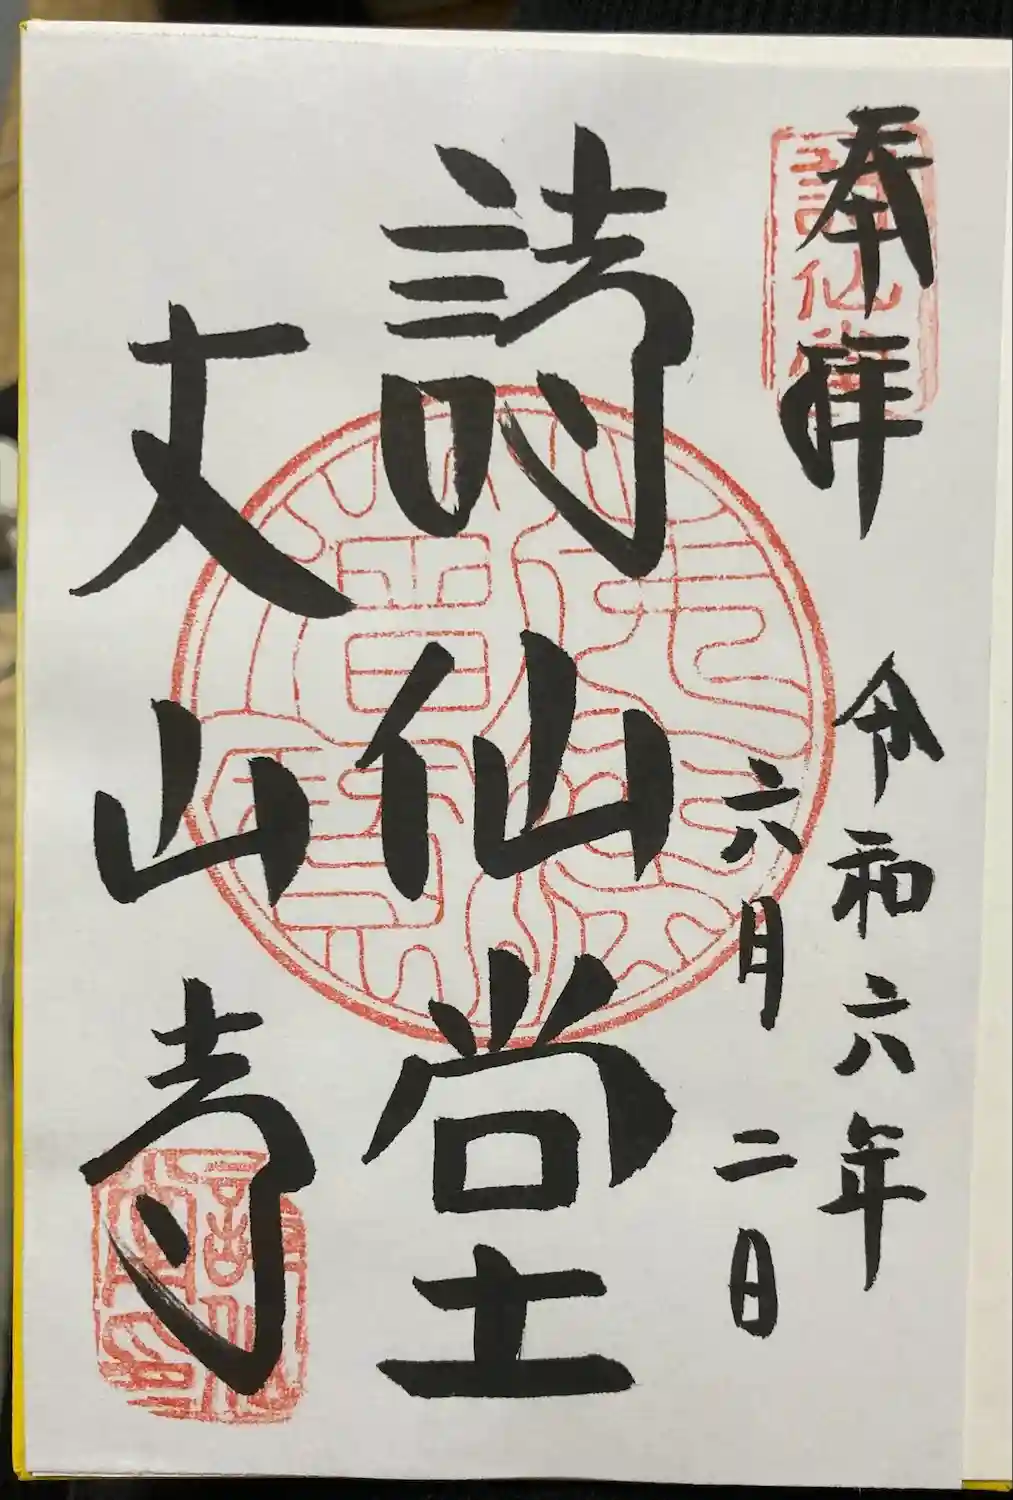 奉拝
令和六年
六月二日
詩仙堂
丈山寺
詩仙堂